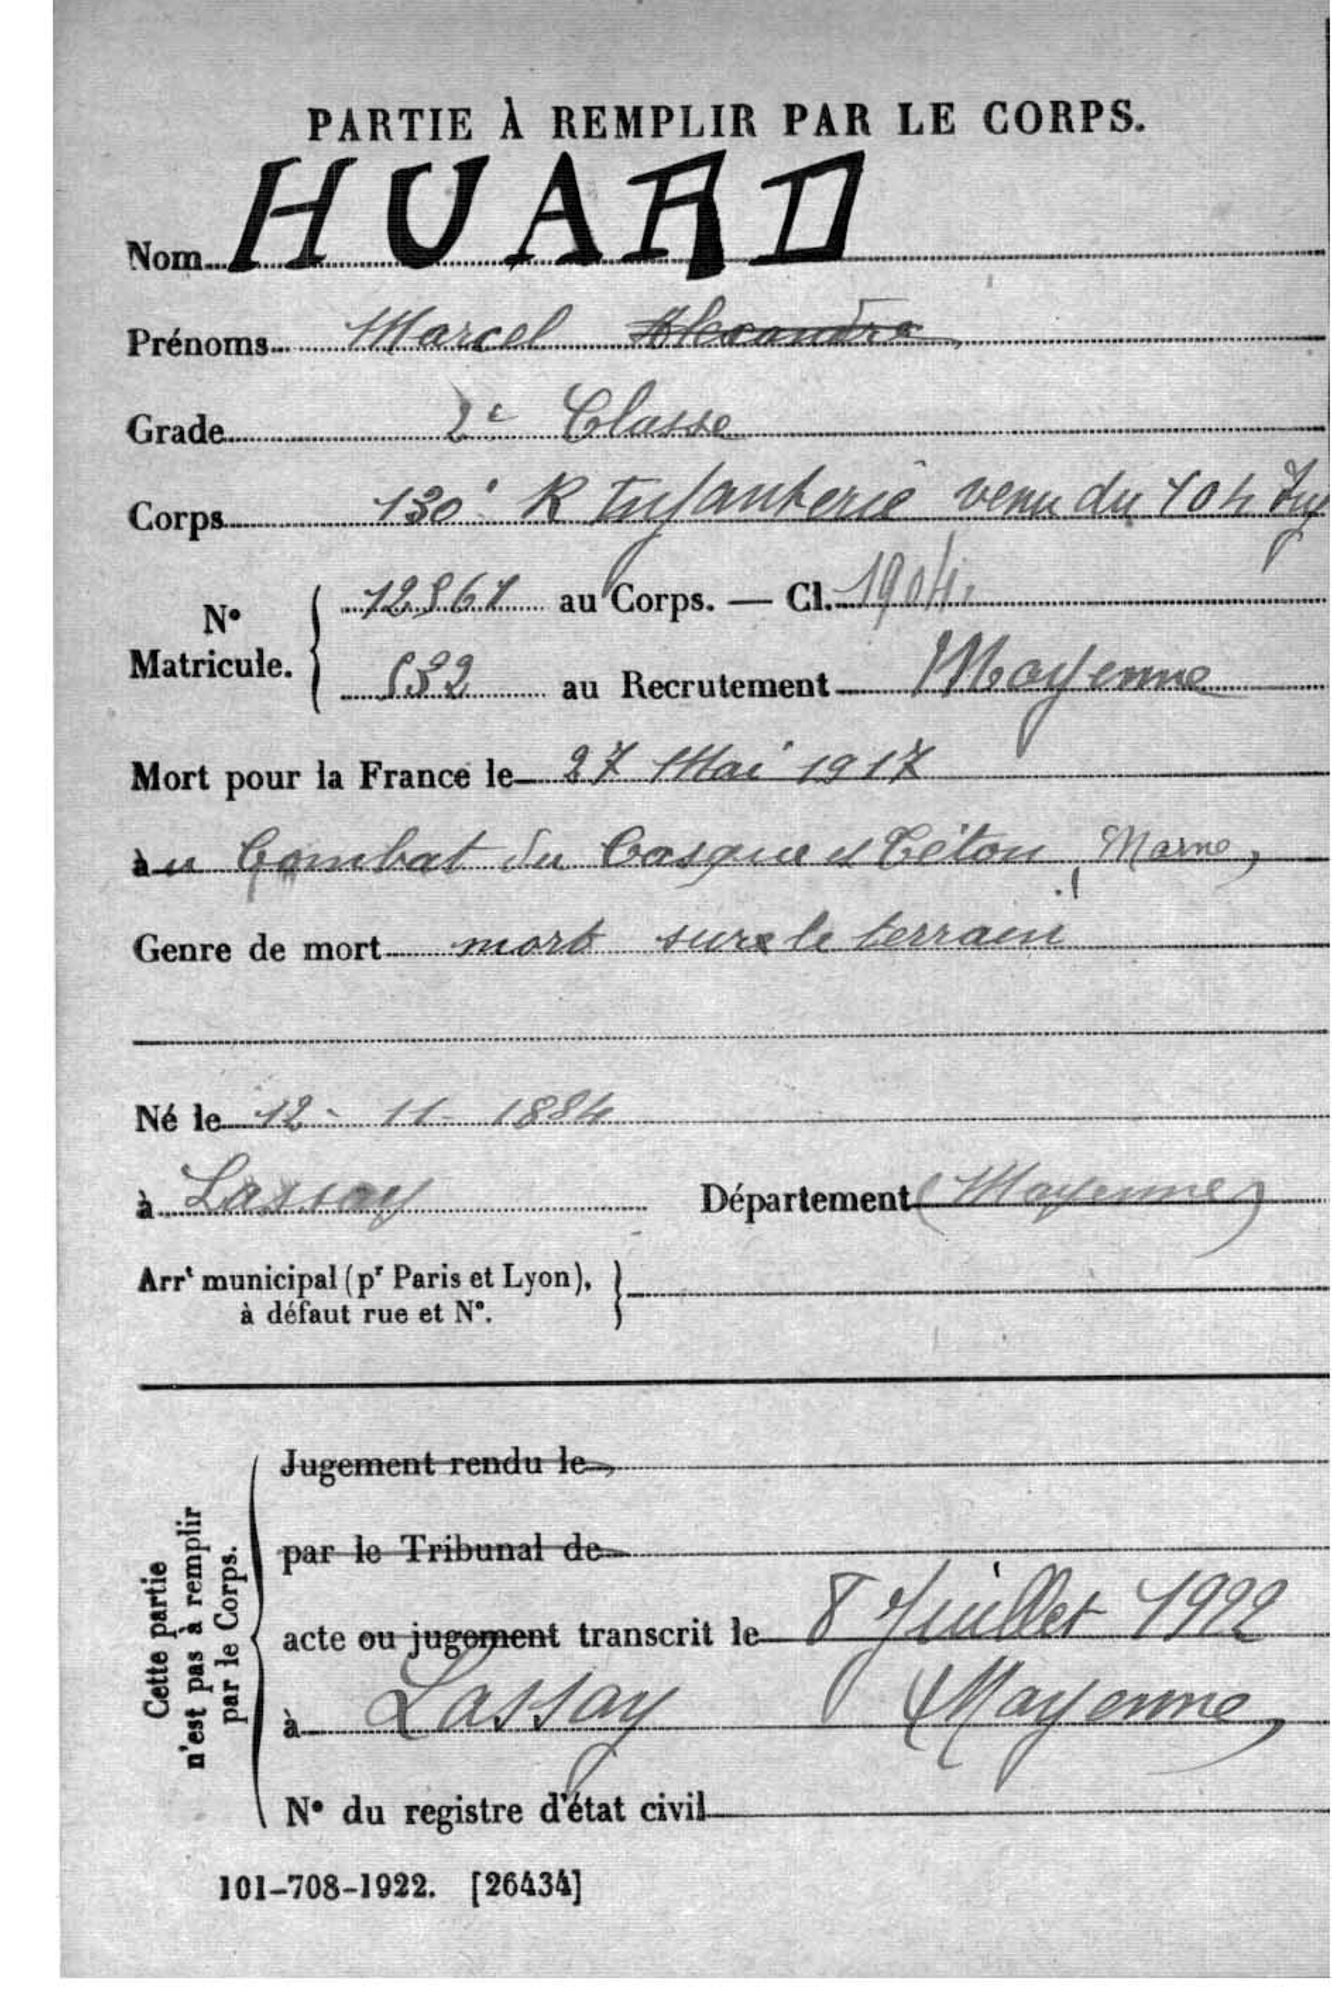 PARTIE À REMPLIR PAR LE CORPS.
Nom HUARD
Prénoms Marcel Alexandre
Grade 2e Classe
Corps 130e R Infanterie venu du 104 Inf
N° Matricule. 12867 au Corps. — Cl. 1904.
532 au Recrutement Mayenne
Mort pour la France le 27 Mai 1917
àu Combat du Casque et Téton, Marne,
Genre de mort mort sur le terrain
Né le 12 - 11 - 1884
à Lassay Département (Mayenne)
Arrt municipal (pr Paris et Lyon),
à défaut rue et N°.
Cette partie
n'est pas à remplir
par le Corps.
Jugement rendu le
par le Tribunal de
acte ou jugement transcrit le 8 Juillet 1922
à Lassay Mayenne,
N° du registre d'état civil
101-708-1922. [26434]